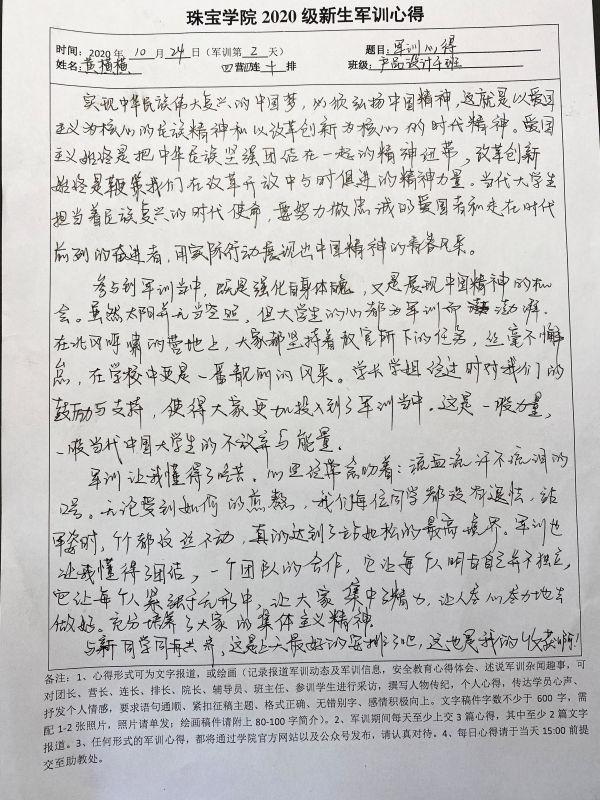 珠宝学院 2020 级新生军训心得
时间：2020 年 10 月 24 日（军训第 2 天） 题目：军训心得
姓名：黄横横 四营 连 十 排 班级：产品设计4班
实现中华民族伟大复兴的中国梦，必须弘扬中国精神，这就是以爱国
主义为核心的民族精神和以改革创新为核心的时代精神。爱国
主义始终是把中华民族坚强团结在一起的精神纽带，改革创新
始终是鞭策我们在改革开放中与时俱进的精神力量。当代大学生
担当着民族复兴的时代使命，要努力做忠诚的爱国者和走在时代
前列的奋进者，用实际行动展现出中国精神的青春风采。
参与到军训当中，既是强化自身体魄，又是展现中国精神的机
会。虽然太阳并无当空照，但大学生的心都为军训而澎湃。
在北风呼啸的营地上，大家都坚持着教官所下的任务，丝毫不懈
怠，在学校中更是一番靓丽的风采。学长学姐经过时对我们的
鼓励与支持，使得大家更加投入到了军训当中。这是一股力量，
一股当代中国大学生的不放弃与能量。
军训让我懂得了吃苦。心里经常念叨着：流血流汗不流泪的
口号。无论受到如何的煎熬，我们每位同学都没有退怯，站
军姿时，个个都纹丝不动，真的达到了站如松的最高境界。军训也
让我懂得了团结，一个团队的合作，它让每个人明白自己并不独立，
它让每个人紧绷于无形中，让大家集中了精力，让人尽心尽力地去
做好。充分培养了大家的集体主义精神。
与新同学同舟共济，这是上天最好的安排了吧，这也是我的收获啊！
备注：1、心得形式可为文字报道，或绘画（记录报道军训动态及军训信息，安全教育心得体会、述说军训杂闻趣事，可
对团长、营长、连长、排长、院长、辅导员、班主任、参训学生进行采访，撰写人物传纪，个人心得，传达学员心声、
抒发个人情感，要求语句通顺、紧扣征稿主题、格式正确、无错别字、感情积极向上。文字稿件字数不少于 600 字，需
配 1-2 张照片，照片请单发；绘画稿件请附上 80-100 字简介）。2、军训期间每天至少上交 3 篇心得，其中至少 2 篇文字
报道。3、任何形式的军训心得，都将通过学院官方网站以及公众号发布，请认真对待。4、每日心得请于当天 15:00 前提
交至助教处。